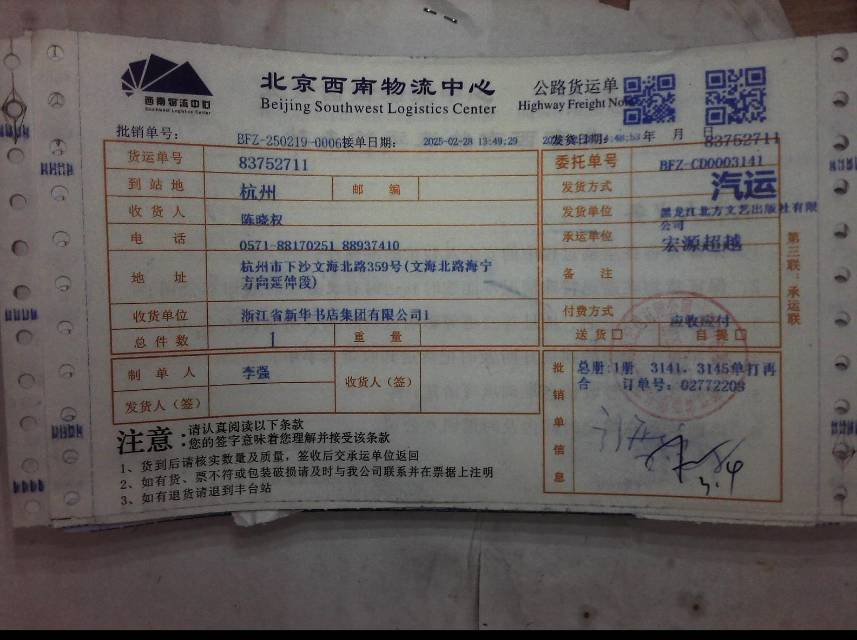 西南物流中心
Southwest Logistics Center
北京西南物流中心
Beijing Southwest Logistics Center
公路货运单
Highway Freight No
批销单号: BFZ-250219-0006 接单日期: 2025-02-28 13:49:29 发货日期: 年 月 日
83752711
货运单号 83752711 委托单号 BFZ-CD0003141
到站地 杭州 邮编 发货方式 汽运
收货人 陈晓权 发货单位 黑龙江北方文艺出版社有限公司
电话 0571-88170251 88937410 承运单位 宏源超越
地址 杭州市下沙文海北路359号(文海北路海宁
方向延伸段)
备注
收货单位 浙江省新华书店集团有限公司1 付费方式 应收应付
总件数 1 重量 送货□ 自提□
制单人 李强 收货人(签)
发货人(签)
批销单信息 总册:1册 3141、3145单打再
合 订单号: 02772208
3.4
第三联:承运联
注意:请认真阅读以下条款
您的签字意味着您理解并接受该条款
1、货到后请核实数量及质量，签收后交承运单位返回
2、如有货、票不符或包装破损请及时与我公司联系并在票据上注明
3、如有退货请退到丰台站